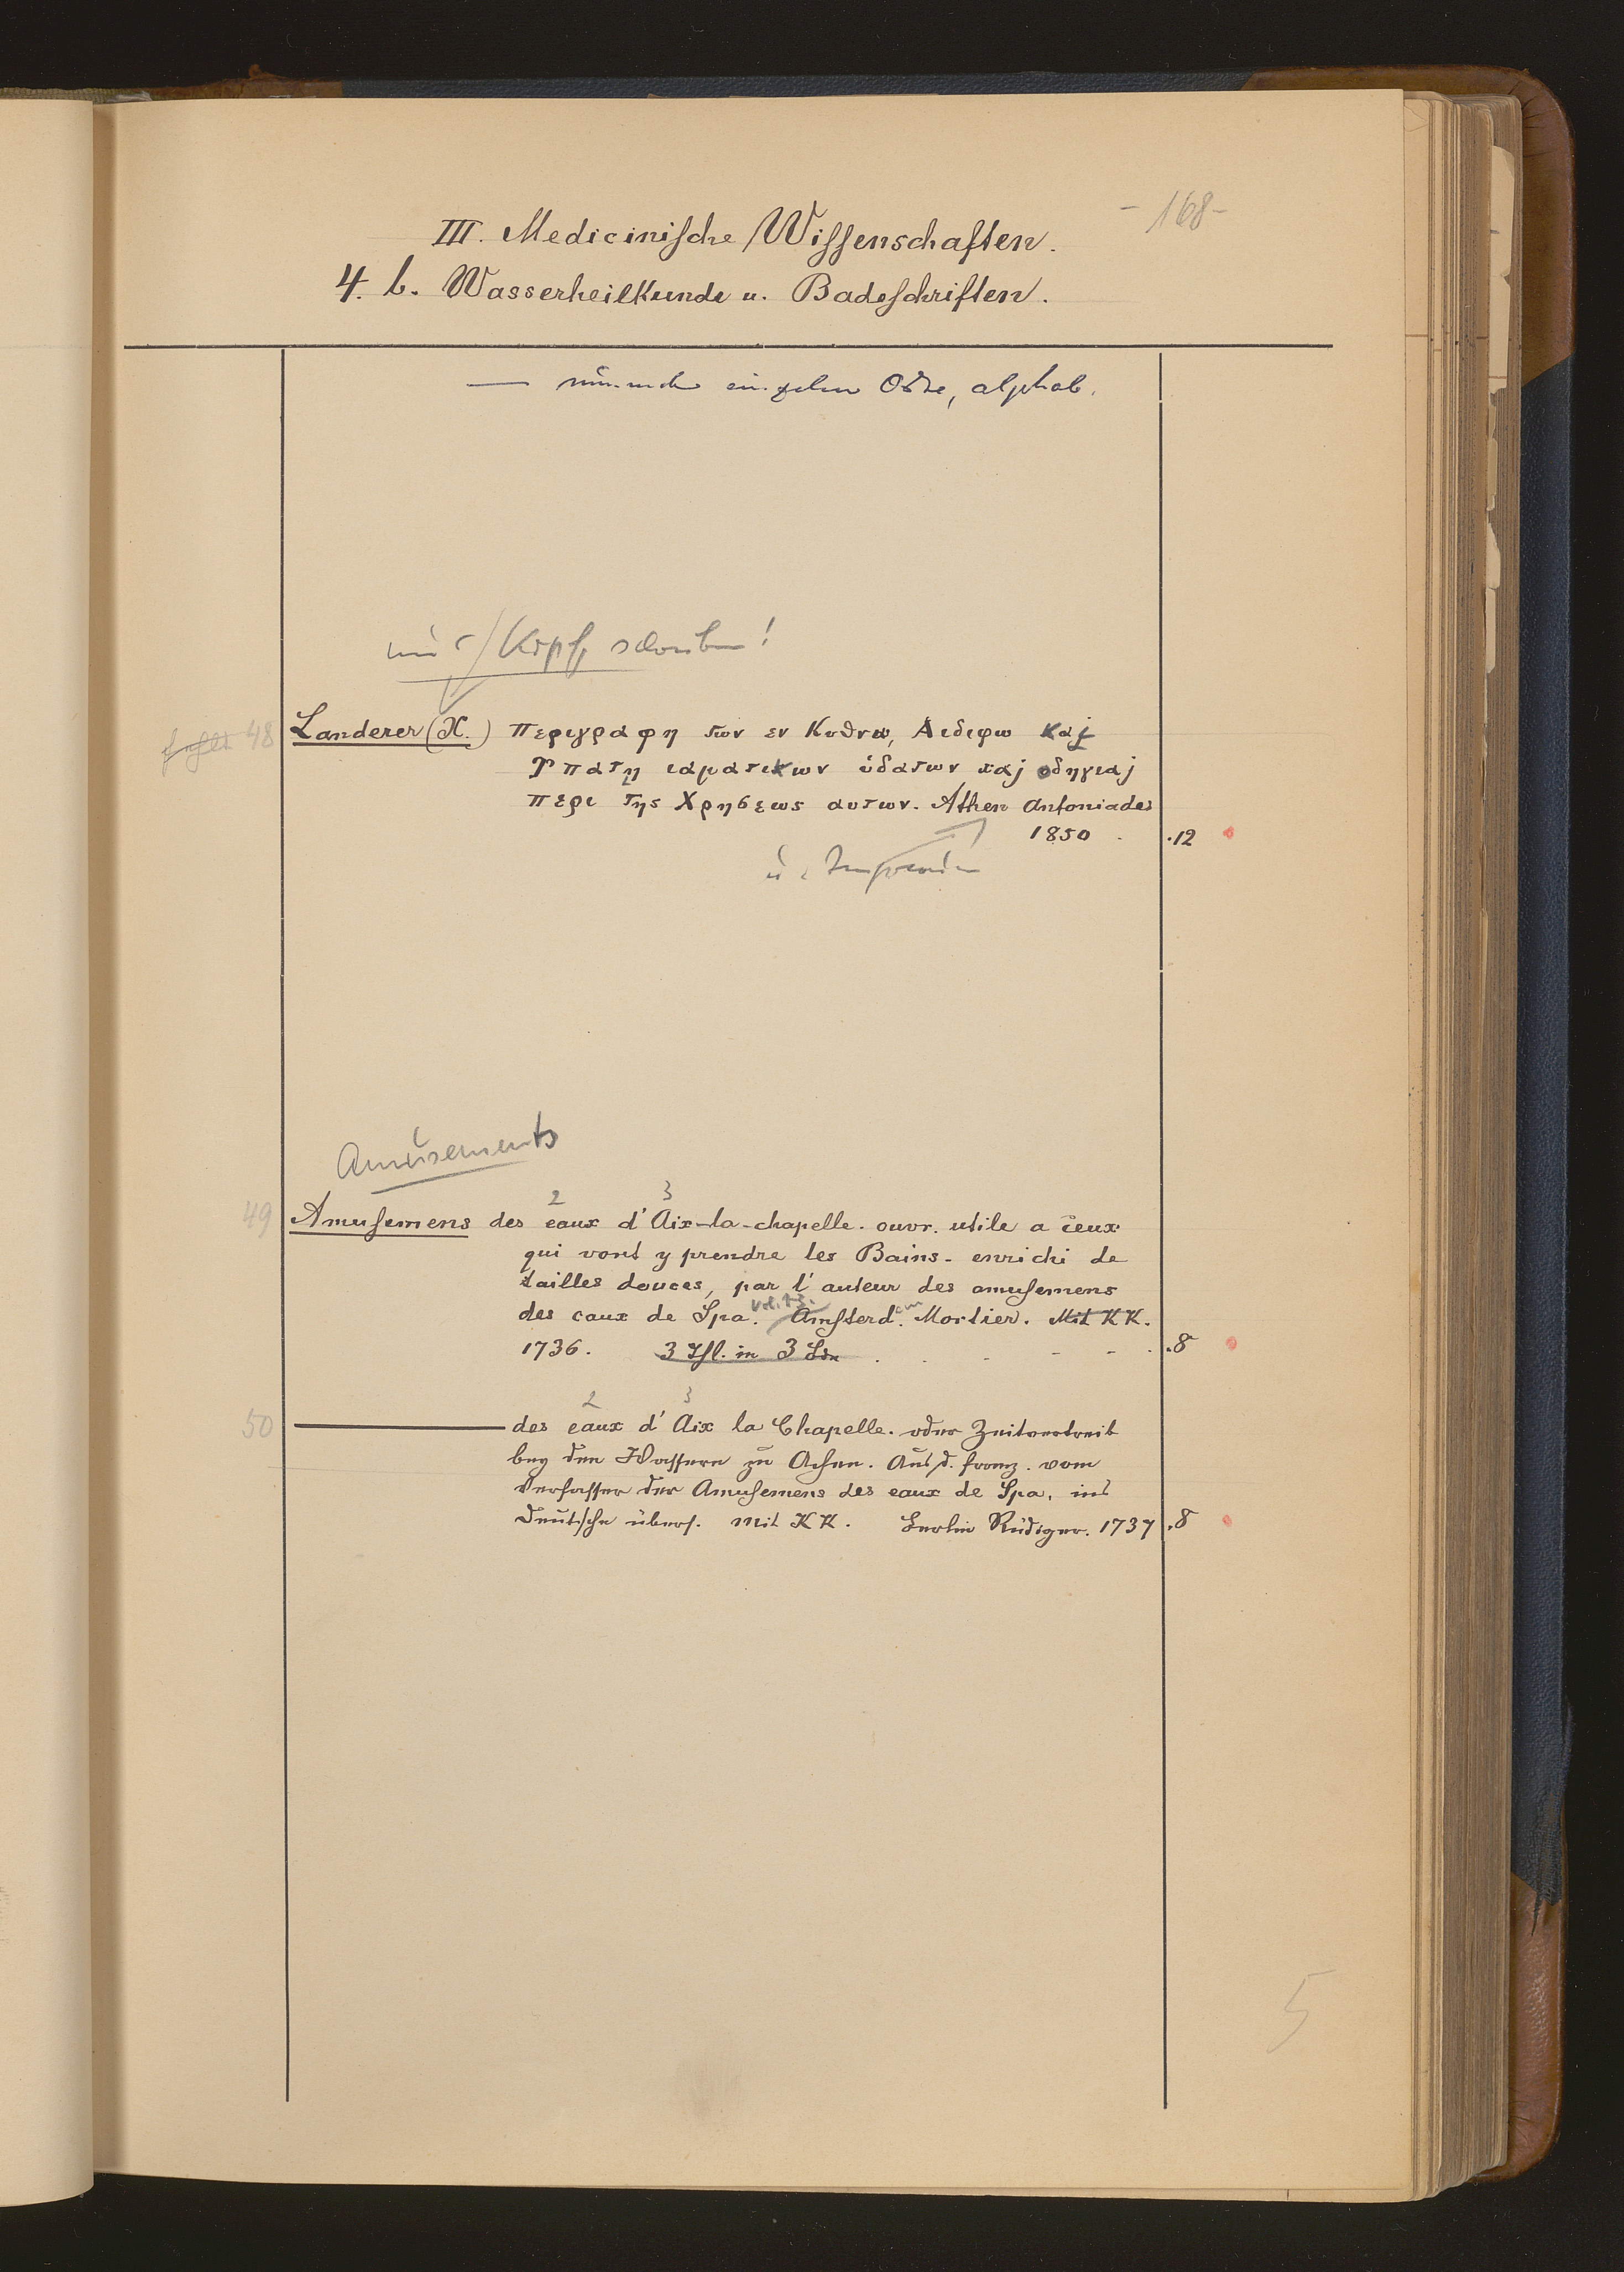 - 168 -
III. Medicinische Wissenschaften.
4. b. Wasserheilkunde u. Badeschriften.
— einzelne Orte, alphab.
Kopf schreiben!
fehlt 48 Landerer (X.) Περιγραφη των εν Κυθνω, Αιδιψω και
Υπατη ιαματικων ὑδατων και οδηγιαι
περι της Χρησεως αυτων. Athen Antoniades
1850 . .12
Amusements
2 3
49 Amusemens des eaux d'Aix-la-chapelle. ouvr. utile a ceux
qui vont y prendre les Bains. enrichi de
tailles douces, par l'auteur des amusemens
Vol. 1-3.
des eaux de Spa. Amsterd. Mortier. Mit KK.
1736. 3 Thl. in 3 Bdn . . - - - . .8
2 3
50 ——— des eaux d'Aix la Chapelle. oder Zeitvertreib
bey den Wassern zu Achen. Aus d. franz. vom
Verfasser der Amusemens des eaux de Spa, ins
Deutsche übers. Mit KK. Berlin Rüdiger. 1737 .8
5